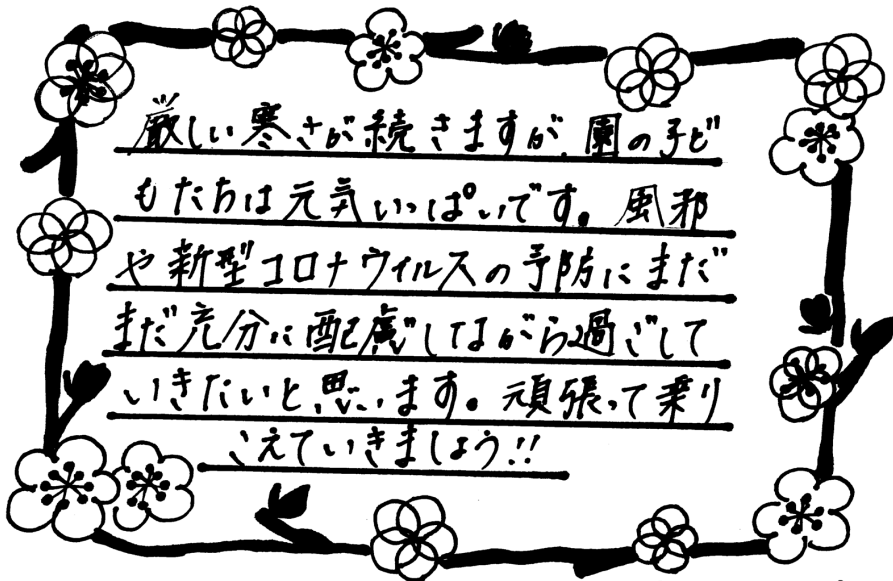 厳しい寒さが続きますが、園の子ど
もたちは元気いっぱいです。風邪
や新型コロナウィルスの予防にまだ
まだ充分に配慮しながら過ごして
いきたいと思います。頑張って乗り
こえていきましょう!!